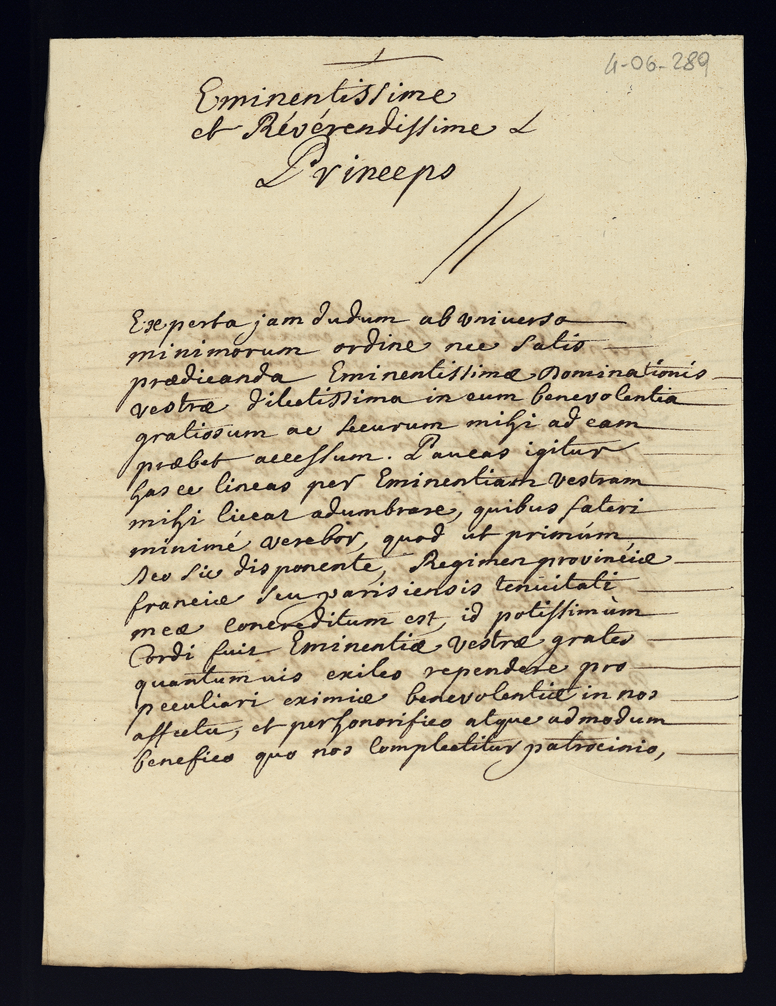 4-06-289
Eminentissime
et Révérendissime
Princeps
Experta jam dudum ab universo
minimorum ordine nec satis
prædicanda Eminentissimæ Dominationis
vestræ dilectissima in eum benevolentia
gratiosum ac securum mihi ad eam
præbet accessum. Paucas igitur
hasce lineas per Eminentiam vestram
mihi liceat adumbrare, quibus fateri
minimé verebor, quod ut primùm,
deo sic disponente, Regimen provinciæ
franciæ seu parisiensis tenuitati
meæ concreditum est, id potissimùm
Cordi fuit Eminentiæ Vestræ grates
quantumvis exiles rependere pro
peculiari eximiæ benevolentiæ in nos
affectu, et perhonorifico atque admodum
benefico quo nos Complectitur patrocinio,